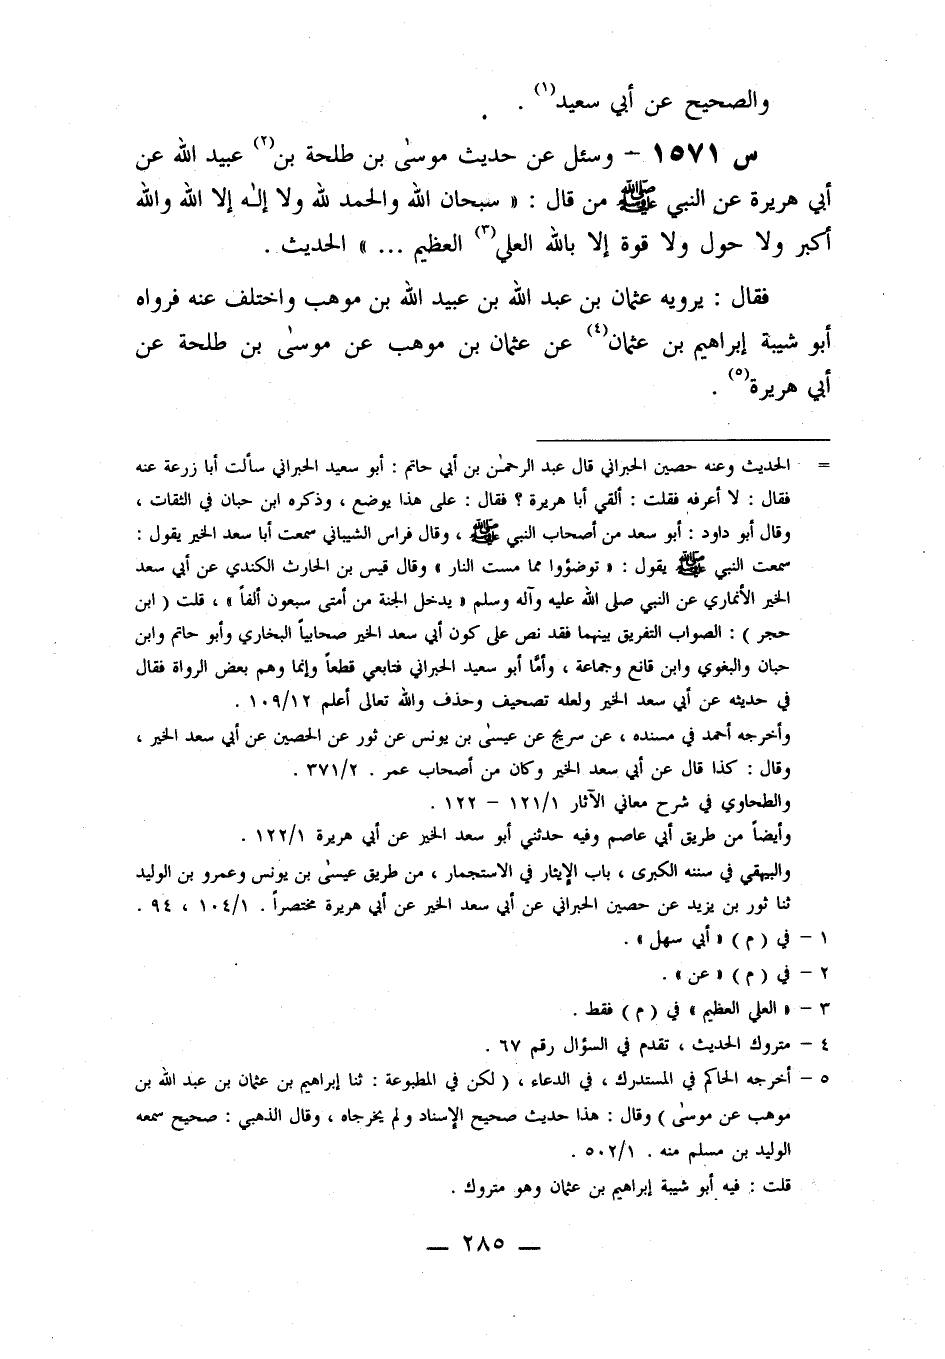 والصحيح عن أبي سعيد(١) .
س ١٥٧١ – وسئل عن حديث موسىٰ بن طلحة بن(٢) عبيد الله عن
أبي هريرة عن النبي ﷺ من قال : « سبحان الله والحمد لله ولا إلٰه إلا الله والله
أكبر ولا حول ولا قوة إلا بالله العلي(٣) العظيم ... » الحديث .
فقال : يرويه عثمان بن عبد الله بن عبيد الله بن موهب واختلف عنه فرواه
أبو شيبة إبراهيم بن عثمان(٤) عن عثمان بن موهب عن موسىٰ بن طلحة عن
أبي هريرة(٥) .
= الحديث وعنه حصين الحبراني قال عبد الرحمٰن بن أبي حاتم : أبو سعيد الحبراني سألت أبا زرعة عنه
فقال : لا أعرفه فقلت : ألقي أبا هريرة ؟ فقال : على هذا يوضع ، وذكره ابن حبان في الثقات ،
وقال أبو داود : أبو سعد من أصحاب النبي ﷺ ، وقال فراس الشيباني سمعت أبا سعد الخير يقول :
سمعت النبي ﷺ يقول : « توضؤوا مما مست النار » وقال قيس بن الحارث الكندي عن أبي سعد
الخير الأنماري عن النبي صلى الله عليه وآله وسلم « يدخل الجنة من أمتى سبعون ألفاً » ، قلت ( ابن
حجر ) : الصواب التفريق بينهما فقد نص على كون أبي سعد الخير صحابياً البخاري وأبو حاتم وابن
حبان والبغوي وابن قانع وجماعة ، وأمَّا أبو سعيد الحبراني فتابعي قطعاً وإنما وهم بعض الرواة فقال
في حديثه عن أبي سعد الخير ولعله تصحيف وحذف والله تعالى أعلم ١٠٩/١٢ .
وأخرجه أحمد في مسنده ، عن سريج عن عيسىٰ بن يونس عن ثور عن الحصين عن أبي سعد الخير ،
وقال : كذا قال عن أبي سعد الخير وكان من أصحاب عمر . ٣٧١/٢ .
والطحاوي في شرح معاني الآثار ١٢١/١ – ١٢٢ .
وأيضاً من طريق أبي عاصم وفيه حدثني أبو سعد الخير عن أبي هريرة ١٢٢/١ .
والبيهقي في سننه الكبرى ، باب الإيثار في الاستجمار ، من طريق عيسىٰ بن يونس وعمرو بن الوليد
ثنا ثور بن يزيد عن حصين الحبراني عن أبي سعد الخير عن أبي هريرة مختصراً . ١٠٤/١ ، ٩٤ .
١ – في ( م ) « أبي سهل » .
٢ – في ( م ) « عن » .
٣ – « العلي العظيم » في ( م ) فقط .
٤ – متروك الحديث ، تقدم في السؤال رقم ٦٧ .
٥ – أخرجه الحاكم في المستدرك ، في الدعاء ، ( لكن في المطبوعة : ثنا إبراهيم بن عثمان بن عبد الله بن
موهب عن موسىٰ ) وقال : هذا حديث صحيح الإسناد ولم يخرجاه ، وقال الذهبي : صحيح سمعه
الوليد بن مسلم منه . ٥٠٢/١ .
قلت : فيه أبو شيبة إبراهيم بن عثمان وهو متروك .
— ٢٨٥ —